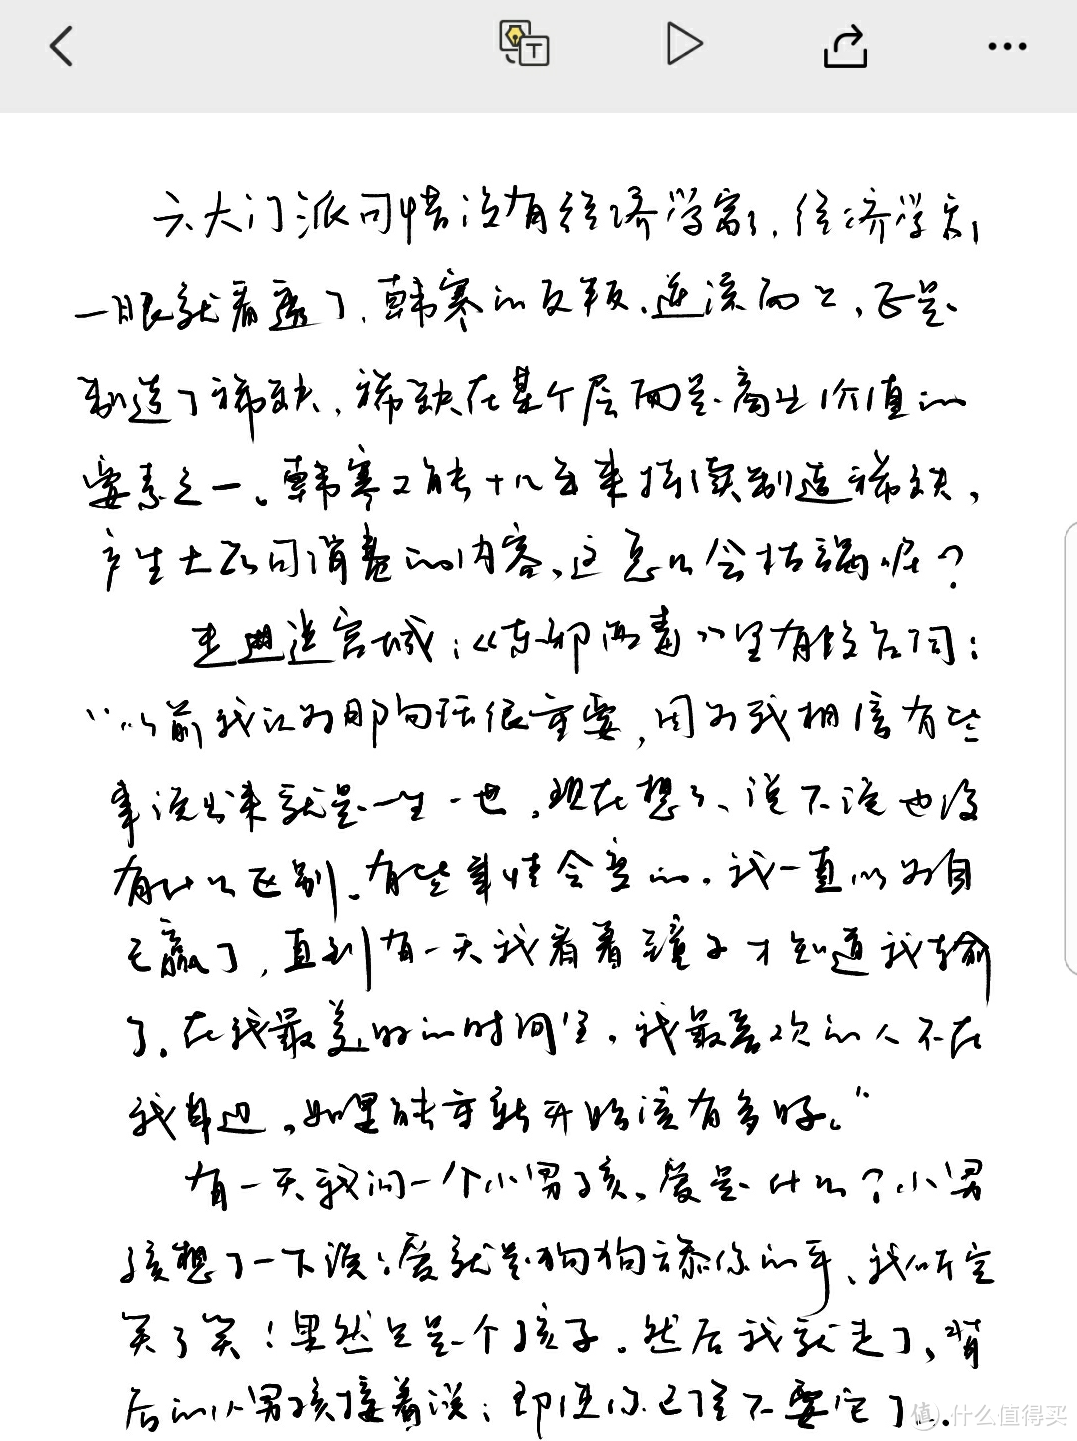 T
六大门派可惜没有经济学家，经济学家
一眼就看透了，韩寒的反叛，逆流而上，正是
制造了稀缺，稀缺在某个层面是商业价值的
要素之一。韩寒又能十几年来持续制造稀缺，
产生大众可消费的内容，这怎么会枯竭呢？
走进迷宫城：《东邪西毒》里有段台词：
“以前我认为那句话很重要，因为我相信有些
事说出来就是一生一世，现在想了，说不说也没
有什么区别。有些事情会变的，我一直以为自
己赢了，直到有一天我看着镜子才知道我输
了。在我最美好的时间里，我最喜欢的人不在
我身边，如果能重新开始该有多好。”
有一天我问一个小男孩，爱是什么？小男
孩想了一下说：爱就是狗狗舔你的手，我听完
笑了笑！果然只是个孩子。然后我就走了，背
后的小男孩接着说：即使你已经不要它了。
值 什么值得买